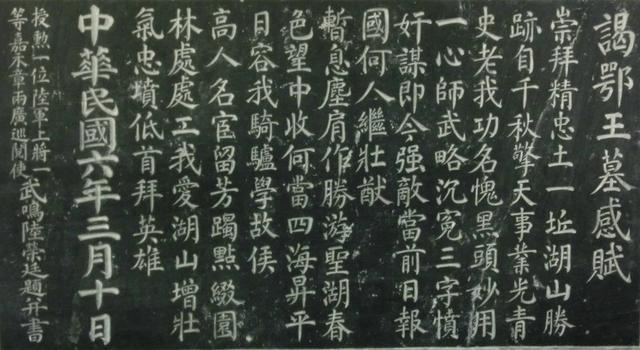 謁鄂王墓感賦
崇拜精忠土一坵湖山勝
跡自千秋擎天事業光青
史老我功名愧黑頭妙用
一心師武略沉冤三字憤
奸謀即今强敵當前日報
國何人繼壯猷
暫息塵肩作勝游聖湖春
色望中收何當四海昇平
日容我騎驢學故侯
高人名宦留芳躅點綴園
林處處工我愛湖山增壯
氣忠墳低首拜英雄
中華民國六年三月十日
授勲一位陸軍上將一
等嘉禾章兩廣巡閱使
武鳴陸榮廷題并書